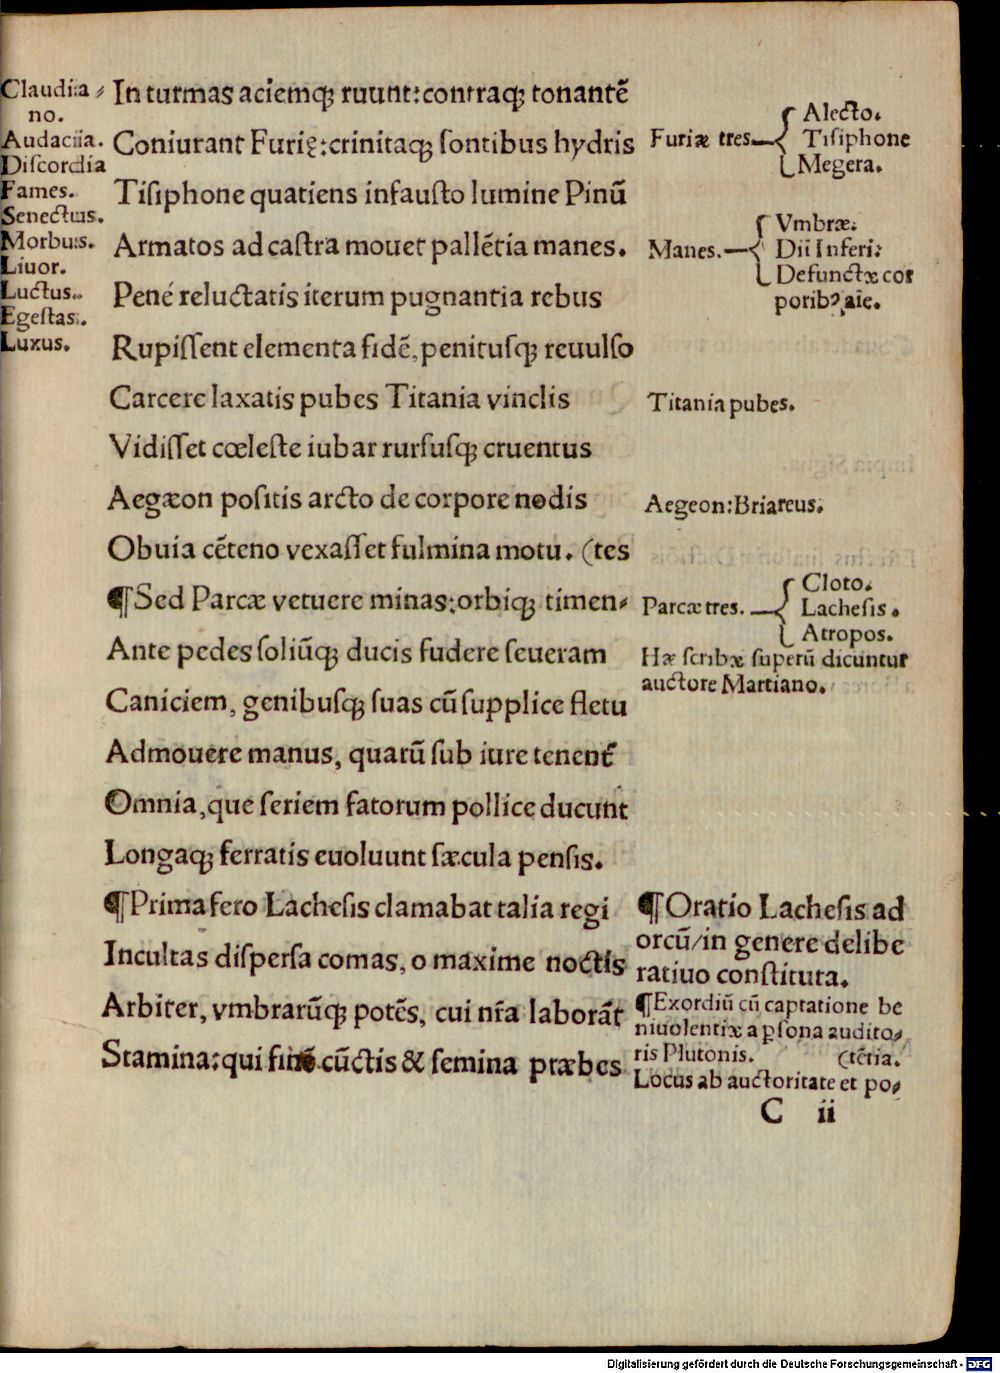 Claudia⸗
no.
Audacia.
Diſcordia
Fames.
Senectus.
Morbus.
Liuor.
Luctus.
Egeſtas.
Luxus.
In turmas aciemqꝫ ruunt:contraqꝫ tonantē
Coniurant Furię:crinitaqꝫ ſontibus hydris
Tiſiphone quatiens infauſto lumine Pinū
Armatos ad caſtra mouet pallētia manes.
Pené reluctatis iterum pugnantia rebus
Rupiſſent elementa fidē, penituſqꝫ reuulſo
Carcere laxatis pubes Titania vinclis
Vidiſſet cœleſte iubar rurſuſqꝫ cruentus
Aegæon poſitis arcto de corpore nodis
Obuia cēteno vexaſſet fulmina motu. (tes
¶Sed Parcæ vetuere minas:orbiqꝫ timen⸗
Ante pedes ſoliūqꝫ ducis fudere ſeueram
Caniciem, genibuſqꝫ ſuas cū ſupplice fletu
Admouere manus, quarū ſub iure tenent᷑
Omnia,que ſeriem fatorum pollice ducunt
Longaqꝫ ferratis euoluunt ſæcula penſis.
¶Prima fero Lacheſis clamabat talia regi
Incultas diſperſa comas, o maxime noctis
Arbiter, vmbrarūqꝫ potēs, cui nr̄a laborāt
Stamina:qui finē cūctis & ſemina præbes
Furiæ tres
Alecto.
Tiſiphone
Megera.
Manes.
Vmbræ.
Dii Inferi:
Defunctæ cor
poribꝰ aīe.
Titania pubes.
Aegeon:Briareus.
Parcæ tres.
Cloto.
Lacheſis.
Atropos.
Hæ ſcribæ ſuperū dicuntur
auctore Martiano.
¶Oratio Lacheſis ad
orcū/in genere delibe
ratiuo conſtituta.
¶Exordiū cū captatione be
niuolentiæ a ꝑſona audito⸗
ris Plutonis. (tētia.
Locus ab auctoritate et po⸗
C ii
Digitalisierung gefördert durch die Deutsche Forschungsgemeinschaft - DFG